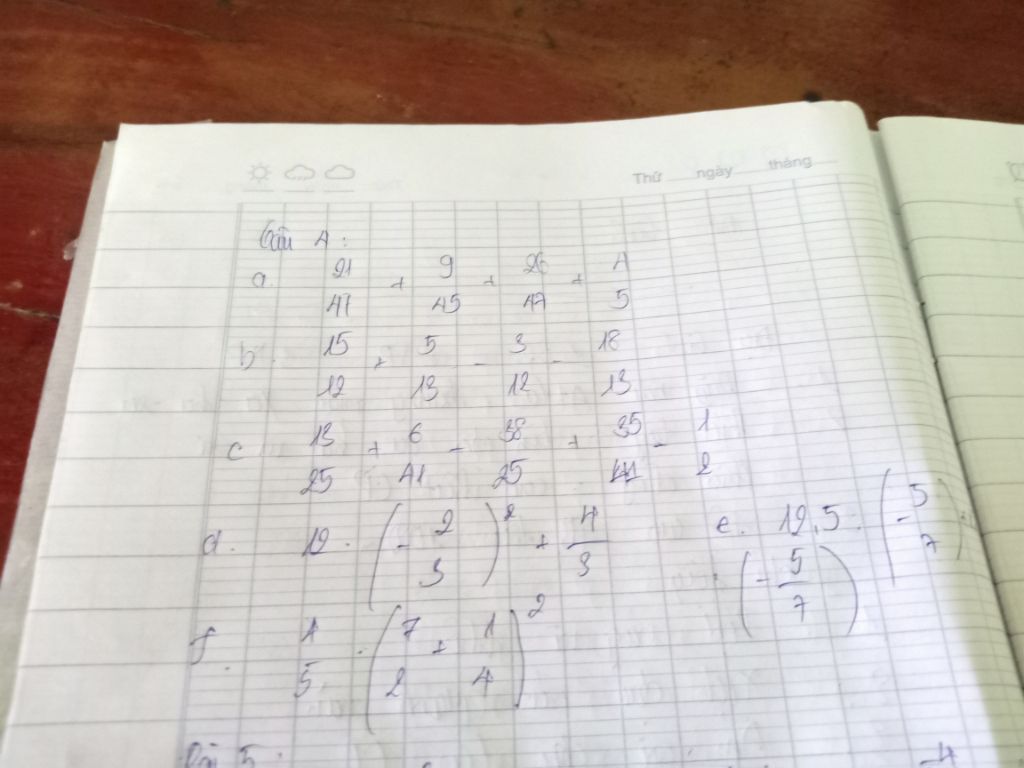 Thứ ngày tháng
Câu 4:
a. 21/47 + 9/45 + 26/47 + 4/5
b. 15/12 + 5/13 - 3/12 - 18/13
c 13/25 + 6/41 - 38/25 + 35/41 - 1/2
d. 12 . (-2/3)² + 4/3
e. 12,5 . (-5/7)
. (-5/7)
f. 1/5 . (7/2 + 1/4)²